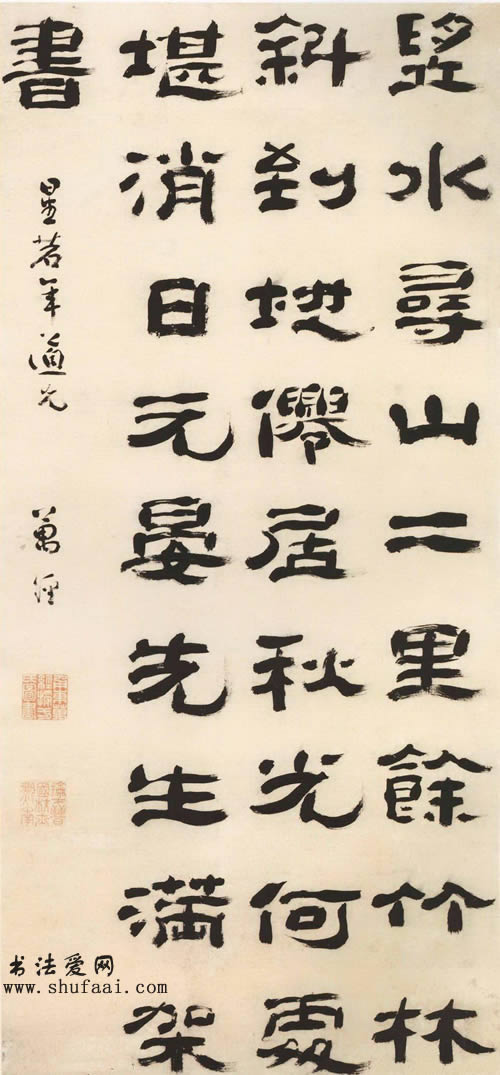 水尋山二里餘竹林
斜到地僊居秋光何處
堪消日元晏先生滿架
書
若年道兄
萬經
书法爱网
www.shufaai.com